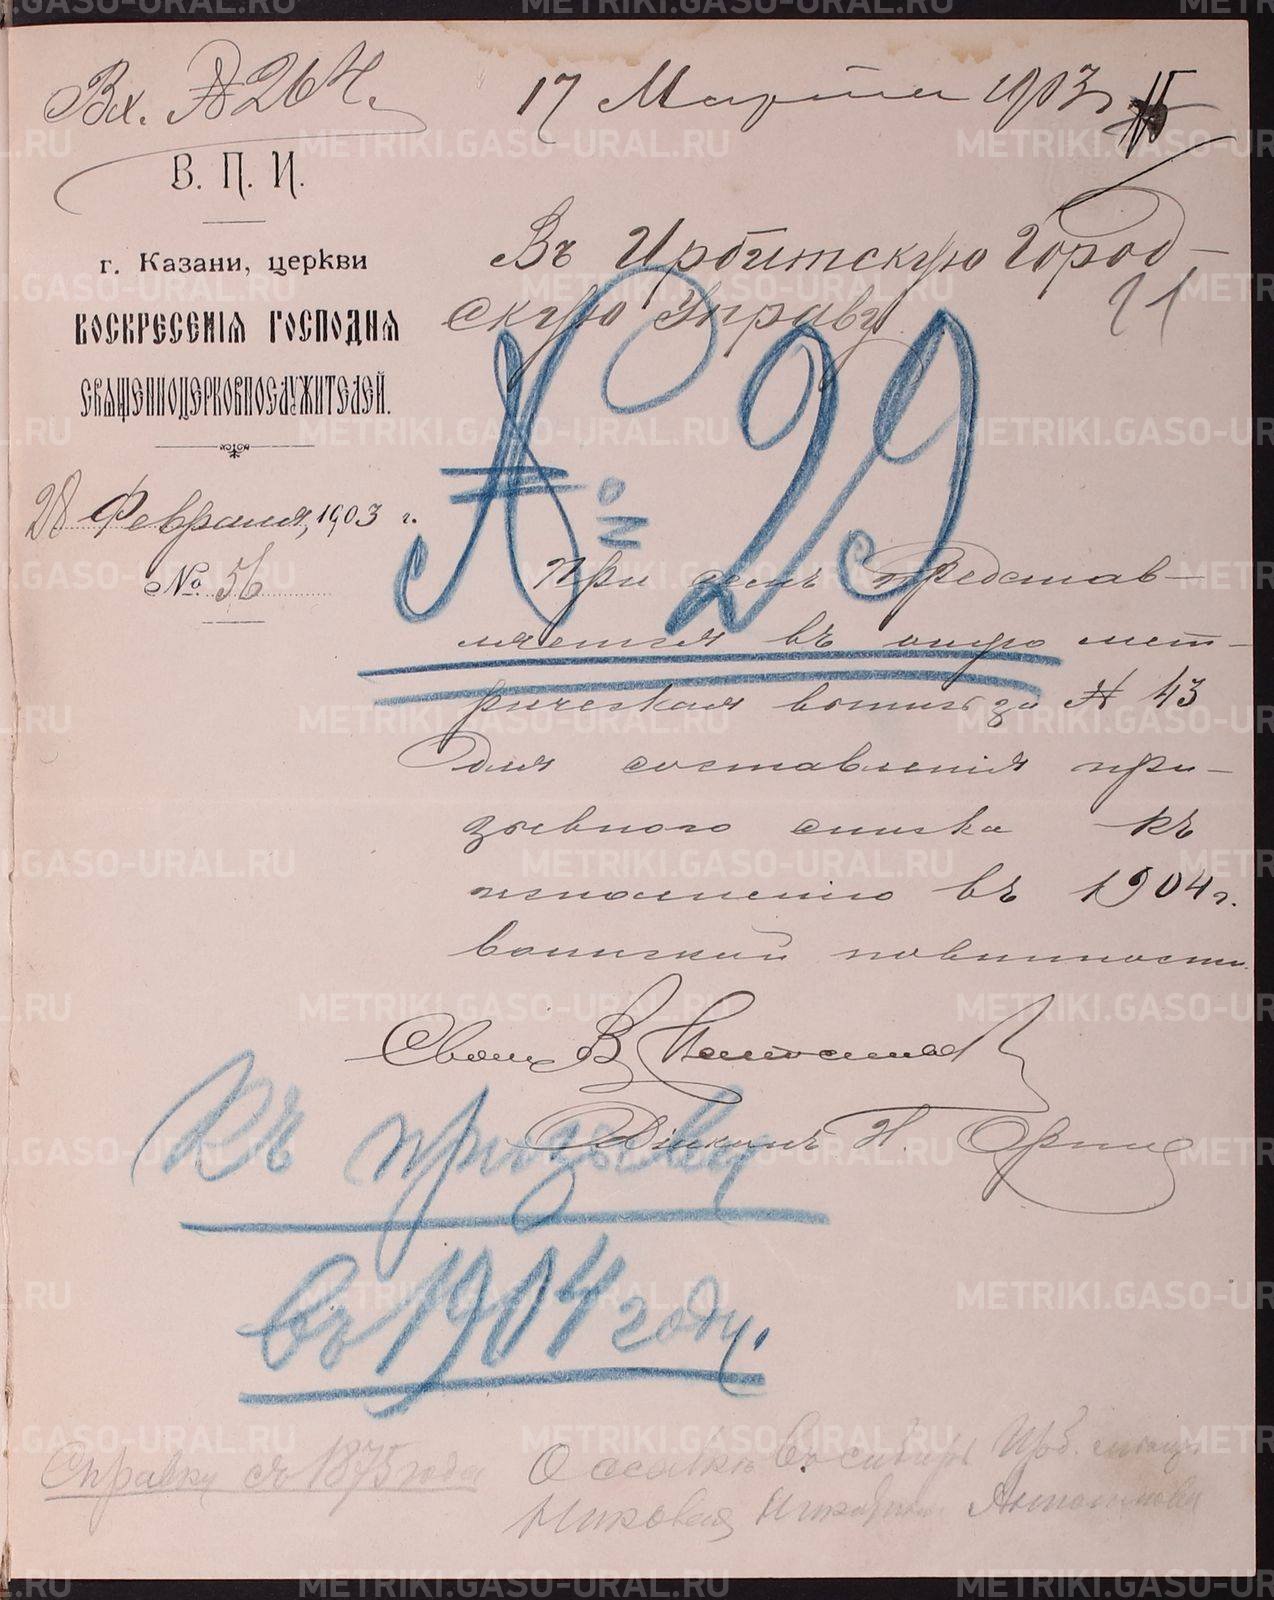 Вх. № 264.
17 Марта 1903 г.
15
В. П. И.
г. Казани, церкви
ВОСКРЕСЕНІЯ ГОСПОДНЯ
СВЯЩЕННОЦЕРКОВНОСЛУЖИТЕЛЕЙ.
28 Февраля, 1903 г.
№ 56
Въ Ирбитскую Город-
скую Управу
21
№ 29
При семъ представ-
ляется въ оную мет-
рическая выпись за № 43
для составленія при-
зывного списка къ
исполненію въ 1904 г.
воинской повинности.
Свящ. В.
Діаконъ Н.
Къ призыву
въ 1904 году.
Справку съ 1875 года
О ссылкѣ въ сибирь Ирб. мѣщ.
METRIKI.GASO-URAL.RU